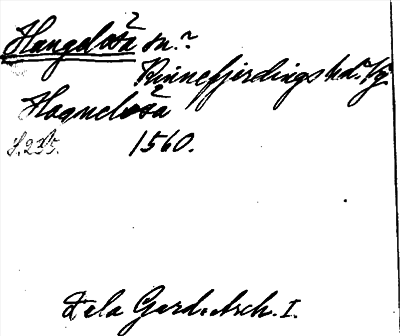 Hangelösa sn.
Kinnefjerdings hd. Vg.
Hagnelösa
1560.
De la Gard. Arch. I.